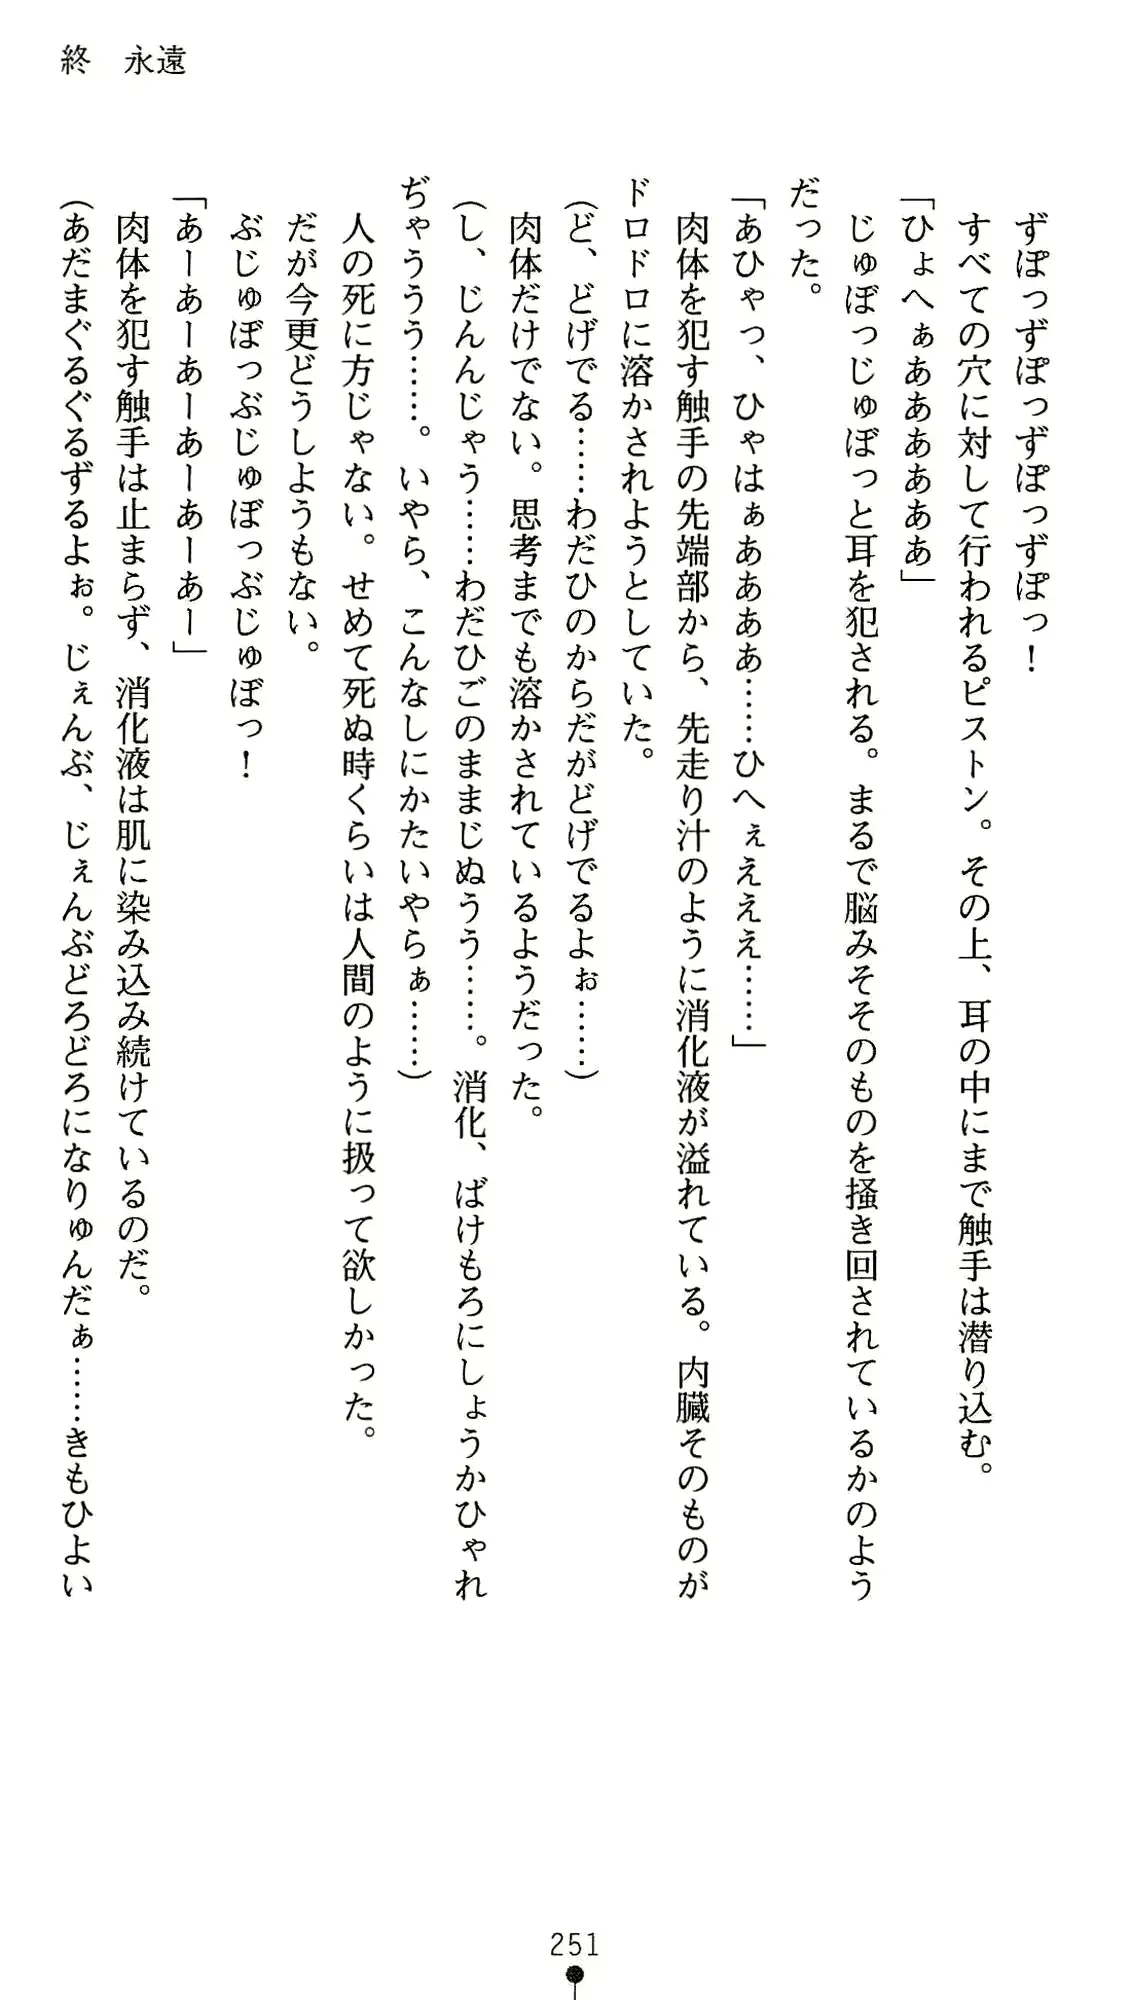 終　永遠
ずぽっずぽっずぽっずぽっ！
すべての穴に対して行われるピストン。その上、耳の中にまで触手は潜り込む。
「ひょへぁああああああ」
じゅぼっじゅぼっと耳を犯される。まるで脳みそそのものを掻き回されているかのよう
だった。
「あひゃっ、ひゃはぁああああ……ひへぇえええ……」
肉体を犯す触手の先端部から、先走り汁のように消化液が溢れている。内臓そのものが
ドロドロに溶かされようとしていた。
（ど、どげでる……わだひのからだがどげでるよぉ……）
肉体だけでない。思考までも溶かされているようだった。
（し、じんんじゃう……わだひごのままじぬうう……。消化、ばけもろにしょうかひゃれ
ぢゃううう……。いやら、こんなしにかたいやらぁ……）
人の死に方じゃない。せめて死ぬ時くらいは人間のように扱って欲しかった。
だが今更どうしようもない。
ぶじゅぼっぶじゅぼっぶじゅぼっ！
「あーあーあーあーあーあー」
肉体を犯す触手は止まらず、消化液は肌に染み込み続けているのだ。
（あだまぐるぐるずるよぉ。じぇんぶ、じぇんぶどろどろになりゅんだぁ……きもひよい
251